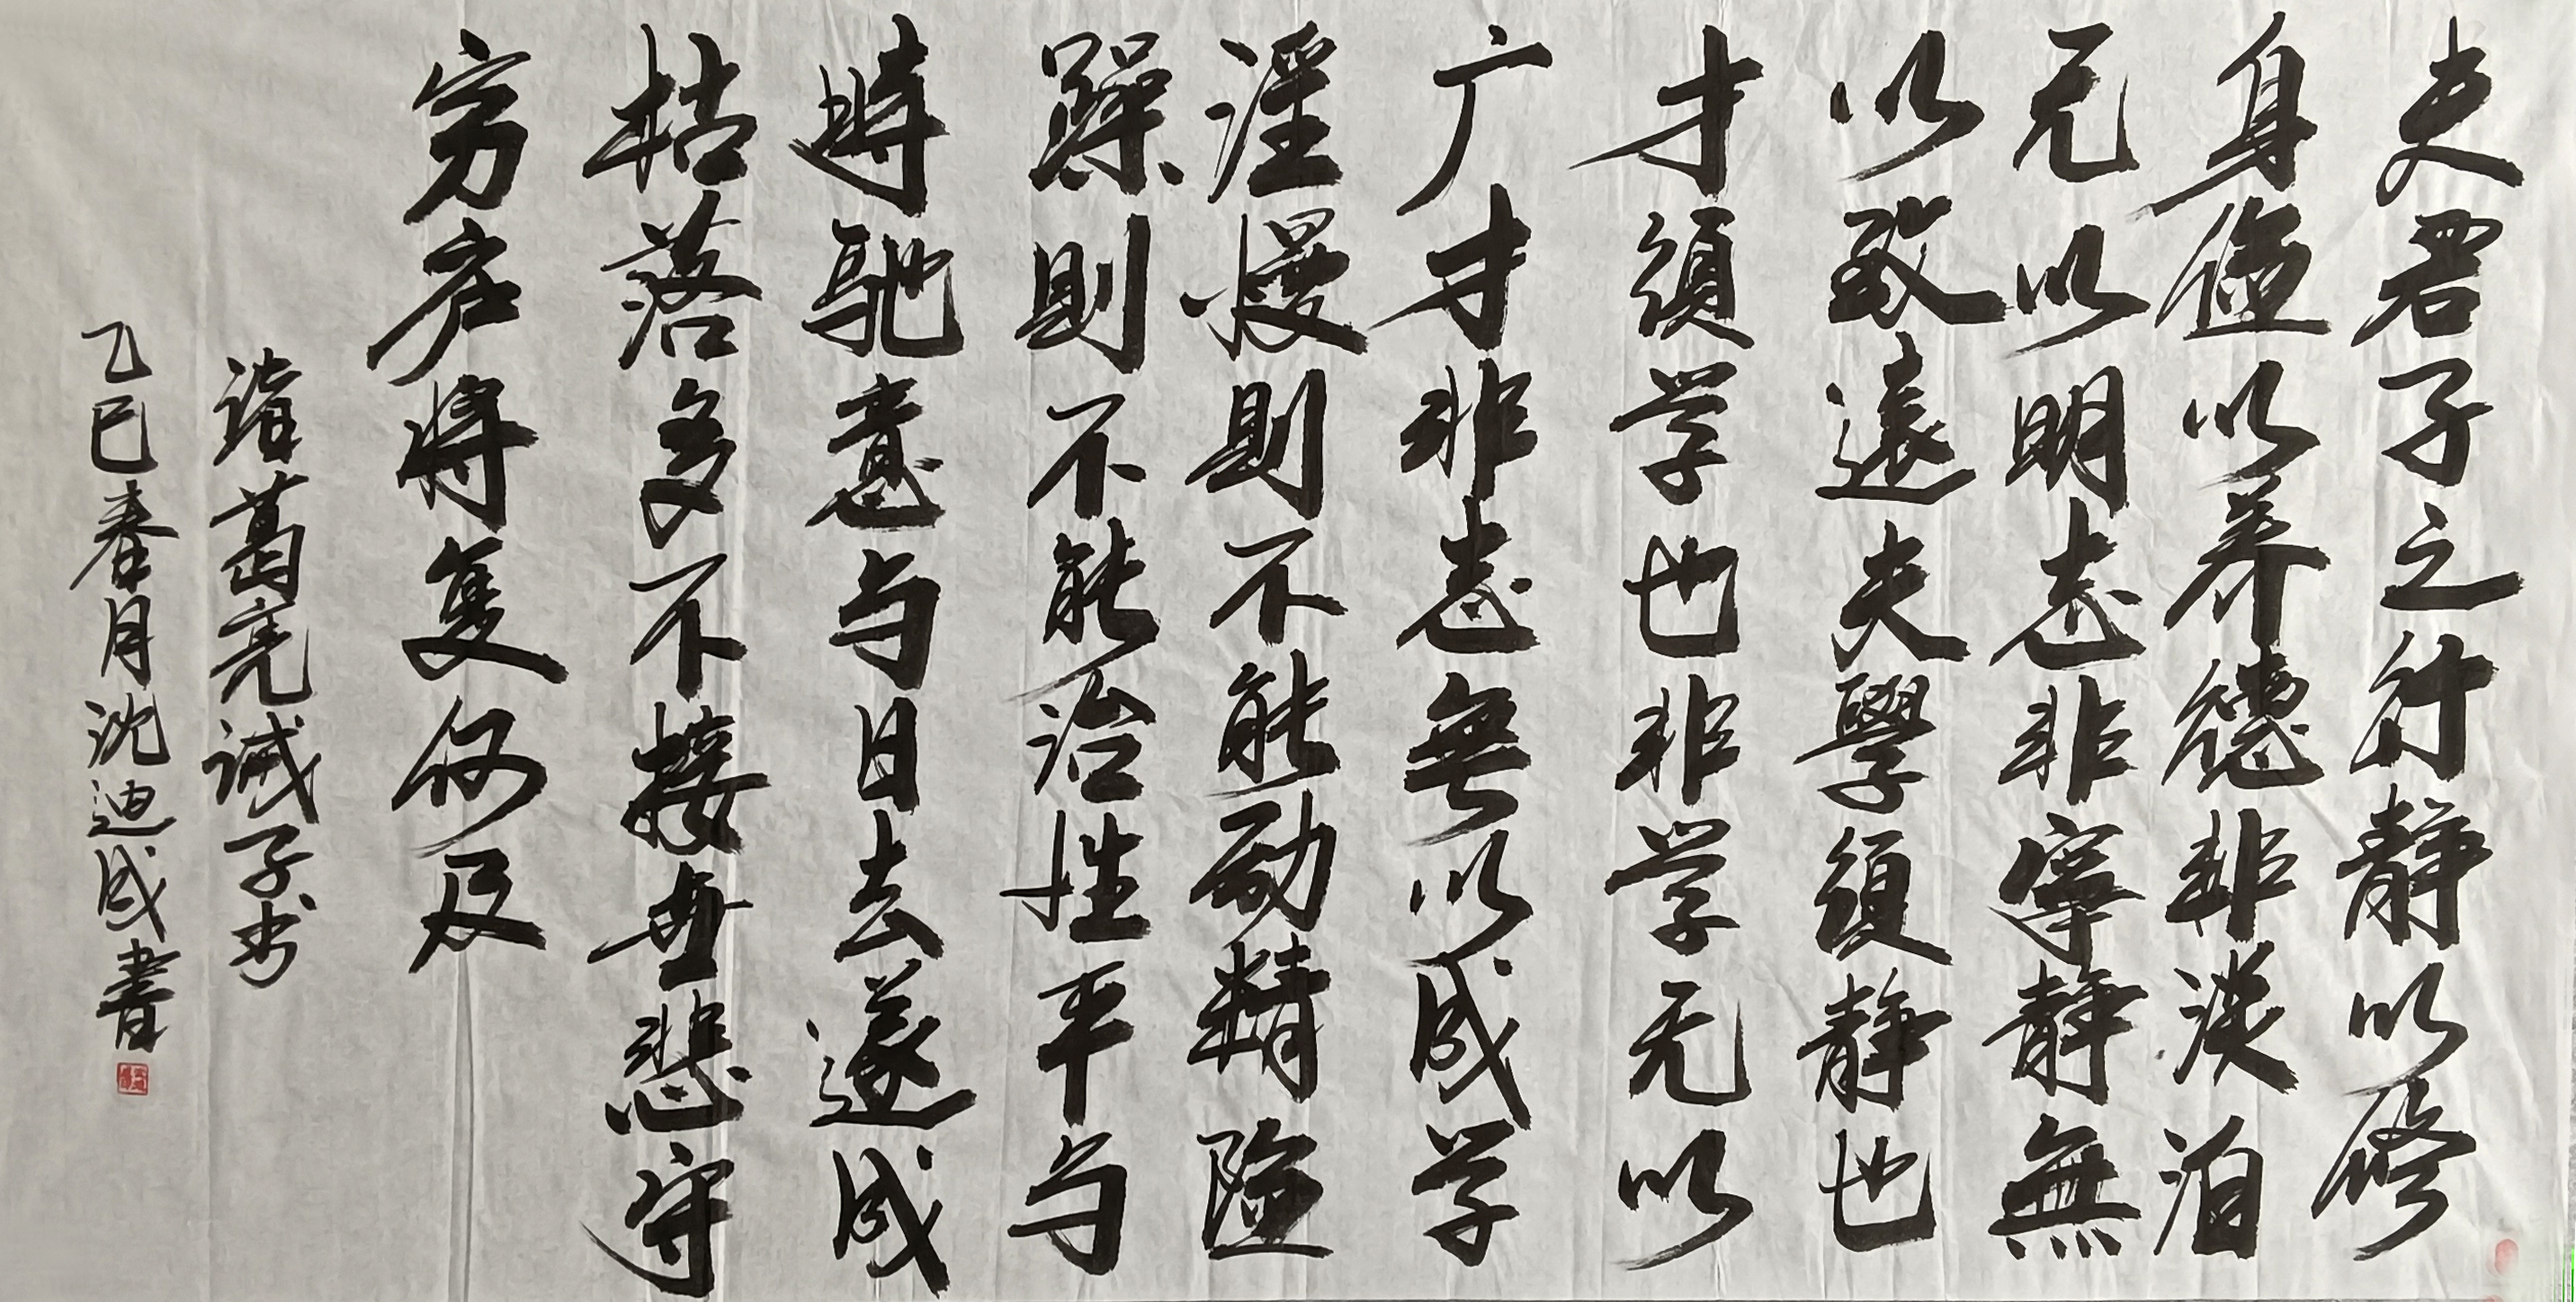 夫君子之行静以修
身俭以养德非淡泊
无以明志非寧静無
以致遠夫學須静也
才須学也非学无以
广才非志無以成学
淫慢則不能励精险
躁則不能治性年与
時馳意与日去遂成
枯落多不接世悲守
穷庐将复何及
诸葛亮诫子书
乙巳春月沈迪成書